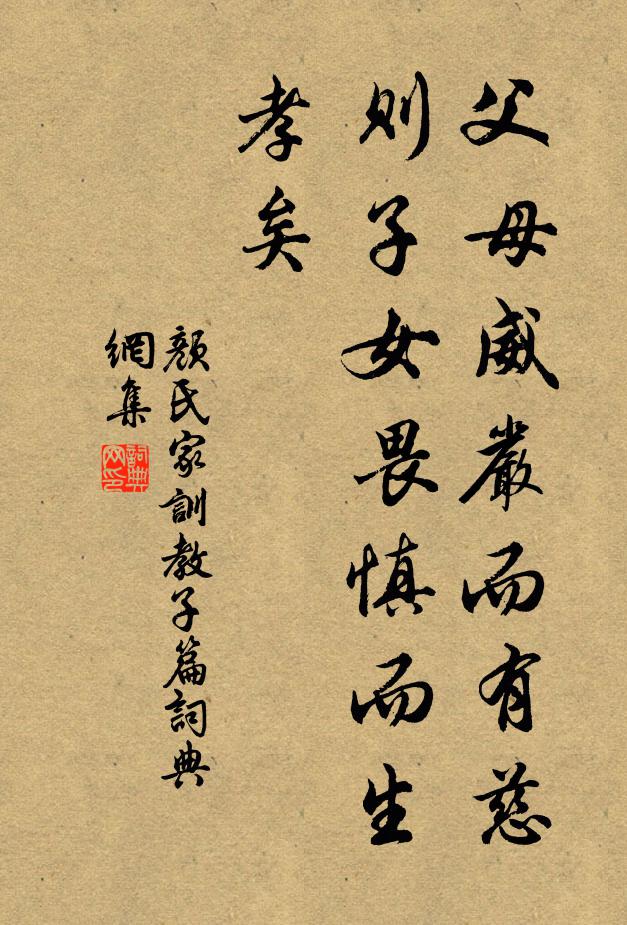 父母威嚴而有慈
則子女畏慎而生
孝矣
顏氏家訓教子篇詞典
網集
詞典
网印